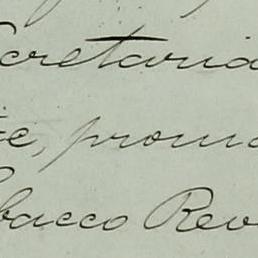 cretaria
te, promo
bacco Rev